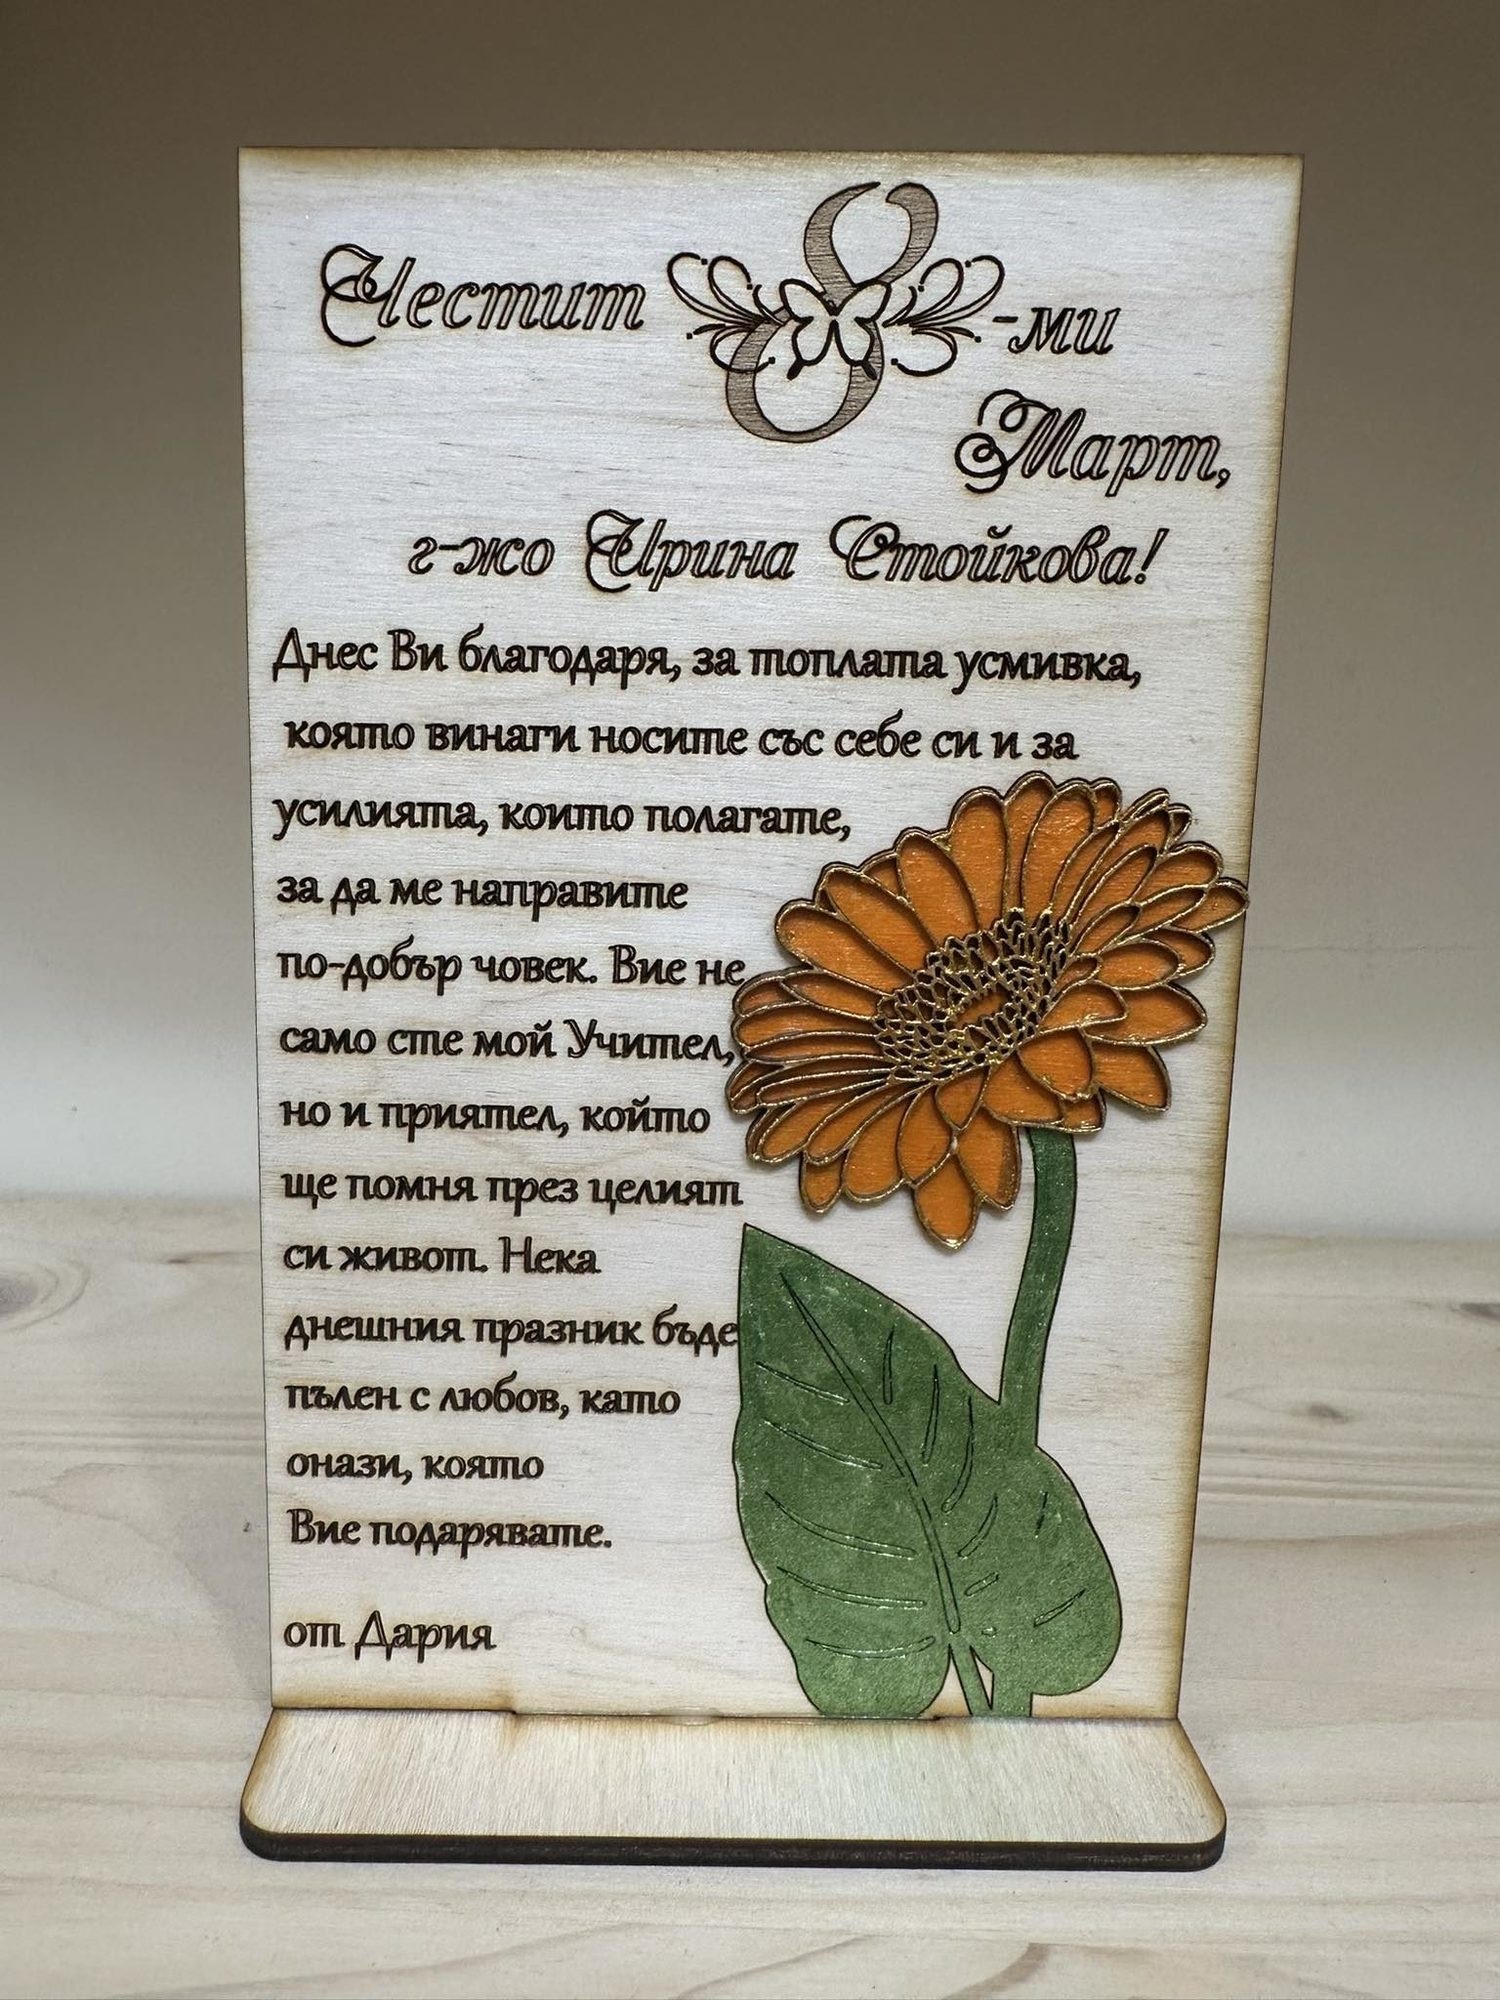 Честит 8-ми
Март,
г-жо Ирина Стойкова!
Днес Ви благодаря, за топлата усмивка,
която винаги носите със себе си и за
усилията, които полагате,
за да ме направите
по-добър човек. Вие не
само сте мой Учител,
но и приятел, който
ще помня през целият
си живот. Нека
днешния празник бъде
пълен с любов, като
онази, която
Вие подарявате.
от Дария